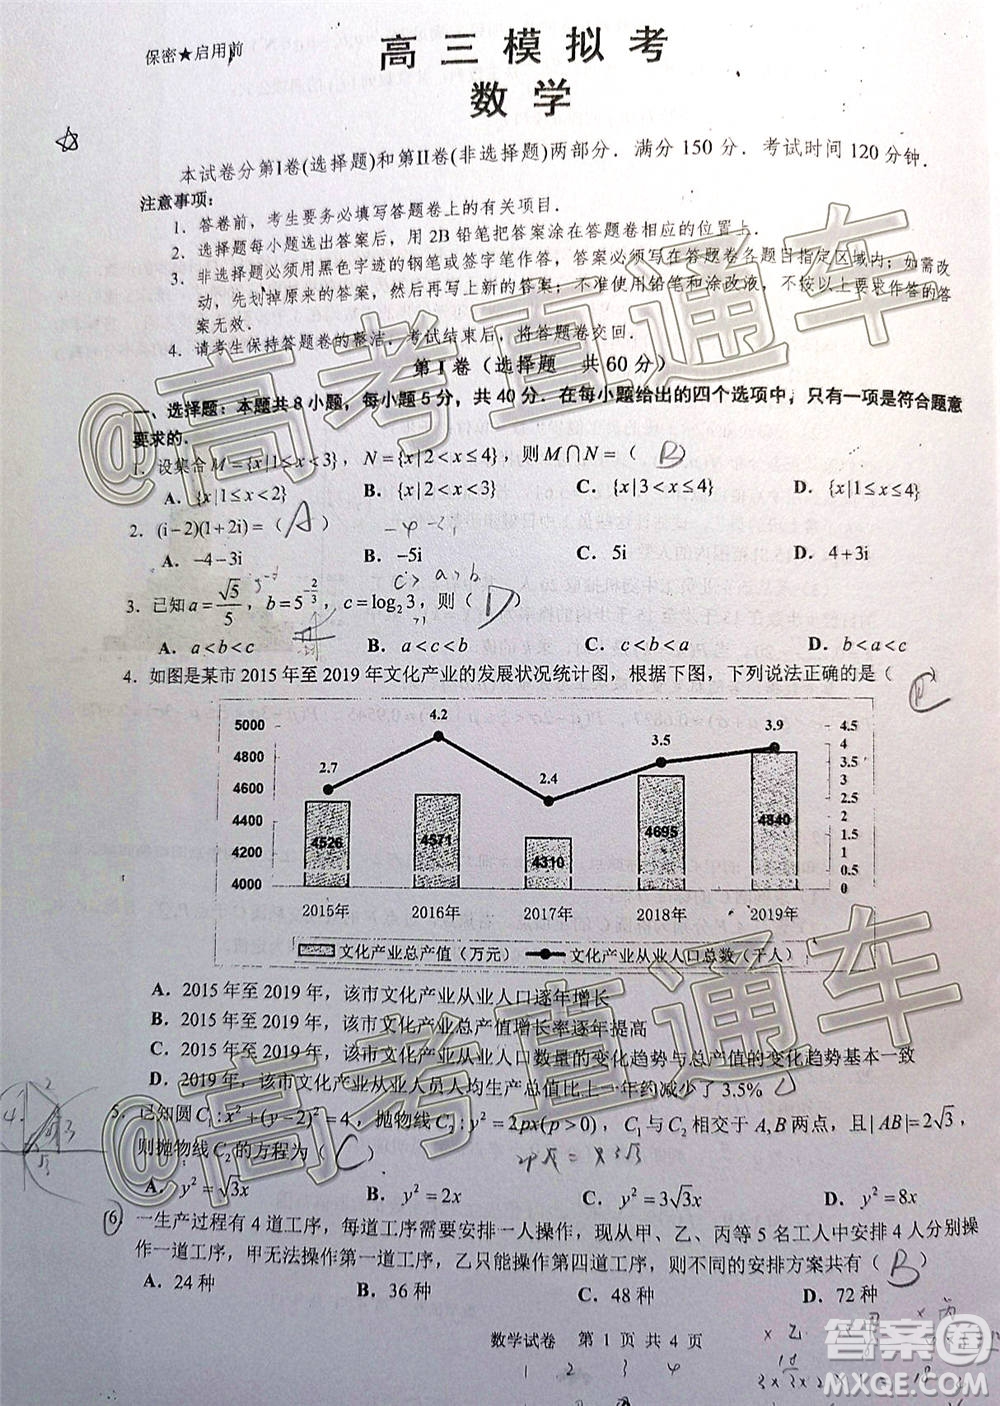 保密★启用前
高三模拟考
数学
本试卷分第Ⅰ卷(选择题)和第Ⅱ卷(非选择题)两部分．满分 150 分．考试时间 120 分钟．
注意事项：
1．答卷前，考生要务必填写答题卷上的有关项目．
2．选择题每小题选出答案后，用 2B 铅笔把答案涂在答题卷相应的位置上．
3．非选择题必须用黑色字迹的钢笔或签字笔作答，答案必须写在答题卷各题目指定区域内；如需改
动，先划掉原来的答案，然后再写上新的答案；不准使用铅笔和涂改液，不按以上要求作答的答
案无效．
4．请考生保持答题卷的整洁，考试结束后，将答题卷交回．
第Ⅰ卷（选择题 共 60 分）
一、选择题：本题共 8 小题，每小题 5 分，共 40 分．在每小题给出的四个选项中，只有一项是符合题意
要求的．
1．设集合 M={x|1≤x<3}，N={x|2<x≤4}，则 M∩N=（ B ）
A．{x|1≤x<2} B．{x|2<x<3} C．{x|3<x≤4} D．{x|1≤x≤4}
2．(i−2)(1+2i)=（ A ）
A．−4−3i B．−5i C．5i D．4+3i
c > a > b
3．已知 a=√5/5，b=5^(−2/3)，c=log₂3，则（ D ）
A．a<b<c B．a<c<b C．c<b<a D．b<a<c
4．如图是某市 2015 年至 2019 年文化产业的发展状况统计图，根据下图，下列说法正确的是（ ）
5000 4800 4600 4400 4200 4000
2.7 4.2 2.4 3.5 3.9
4526 4571 4310 4695 4840
4.5 4 3.5 3 2.5 2 1.5 1 0.5 0
2015年 2016年 2017年 2018年 2019年
文化产业总产值（万元） 文化产业从业人口总数（千人）
A．2015 年至 2019 年，该市文化产业从业人口逐年增长
B．2015 年至 2019 年，该市文化产业总产值增长率逐年提高
C．2015 年至 2019 年，该市文化产业从业人口数量的变化趋势与总产值的变化趋势基本一致
D．2019 年，该市文化产业从业人员人均生产总值比上一年约减少了 3.5%
5．已知圆 C₁:x²+(y−2)²=4，抛物线 C₂:y²=2px(p>0)，C₁与 C₂相交于 A,B 两点，且|AB|=2√3，
则抛物线 C₂的方程为（ C ）
A．y²=√3x B．y²=2x C．y²=3√3x D．y²=8x
6．一生产过程有 4 道工序，每道工序需要安排一人操作，现从甲、乙、丙等 5 名工人中安排 4 人分别操
作一道工序，甲无法操作第一道工序，乙只能操作第四道工序，则不同的安排方案共有（ B ）
A．24 种 B．36 种 C．48 种 D．72 种
数学试卷 第 1 页 共 4 页
1 2 3 4
@高考直通车
@高考直通车
答案圈
MXQE.COM